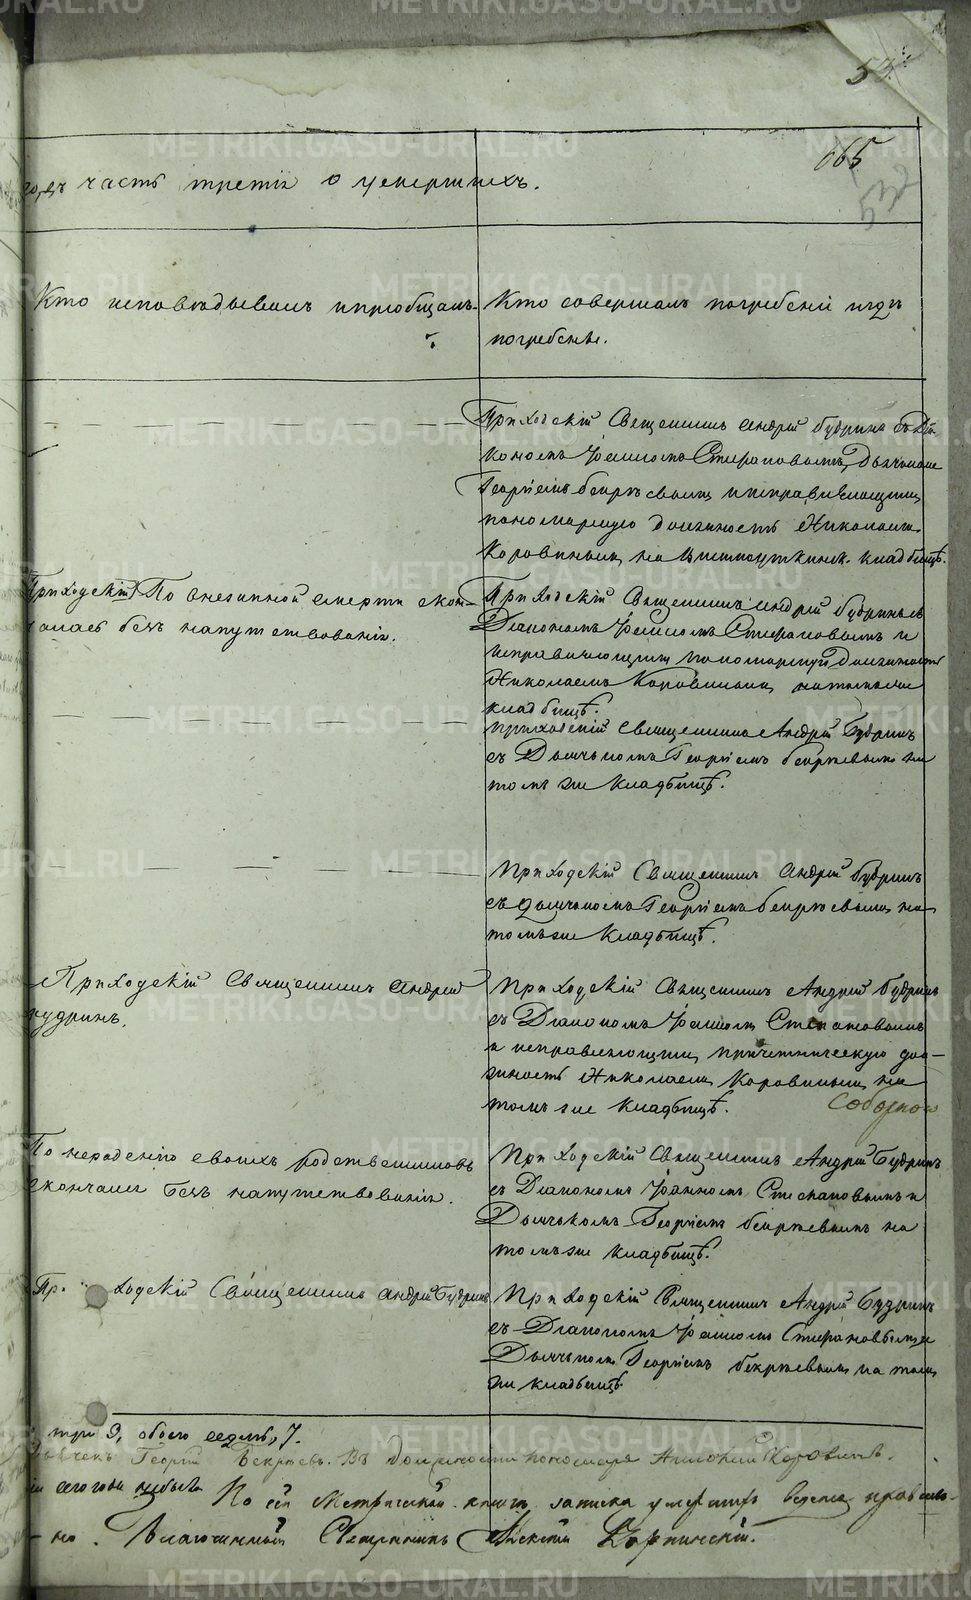 53
065
532
годъ часть третія о умершихъ.
Кто исповѣдывалъ и пріобщалъ
Кто совершалъ погребеніе и гдѣ
погребены.
Приходскій Священникъ Андрей Будринъ съ Діа
кономъ Іоанномъ Стефановымъ, Дьячкомъ
Георгіемъ и исправляющимъ
пономарскую должность Николаемъ
Коровинымъ, на кладбищѣ.
Приходскій По внезапной смерти скон-
чалась безъ напутствованія.
Приходскій Священникъ Андрей Будринъ съ
Діакономъ Іоанномъ Стефановымъ и
исправляющимъ пономарскую должность
Николаемъ Коровинымъ, на томъ же
кладбищѣ.
приходскій Священникъ Андрей Будринъ
съ Дьячкомъ Георгіемъ Бекрѣевымъ на
томъ же кладбищѣ.
Приходскій Священникъ Андрей Будринъ
съ дьячкомъ Георгіемъ Бекрѣевымъ на
томъ же кладбищѣ.
Приходскій Священникъ Андрей
Будринъ.
Приходскій Священникъ Андрей Будринъ
съ Діакономъ Іоанномъ Стефановымъ
и исправляющимъ причетническую дол-
жность Николаемъ Коровинымъ на
томъ же кладбищѣ. Соборном
По нерадѣнію своихъ родственниковъ
скончался безъ напутствованія.
Приходскій Священникъ Андрей Будринъ
съ Діакономъ Іоанномъ Стефановымъ и
Дьячкомъ Георгіемъ Бекрѣевымъ на
томъ же кладбищѣ.
Приходскій Священникъ Андрей Будринъ
Приходскій Священникъ Андрей Будринъ
съ Діакономъ Іоанномъ Стефановымъ и
Дьячкомъ Георгіемъ Бекрѣевымъ на томъ
же кладбищѣ.
три 3, обоего седмь, 7.
Дьячекъ Георгій Бекрѣевъ. Въ должности пономаря Николай Коровинъ.
сего года По сей Метрической книгѣ записка умершихъ ведена правиль-
но. Благочинный Священникъ Алексій Карпинскій.
METRIKI.GASO-URAL.RU